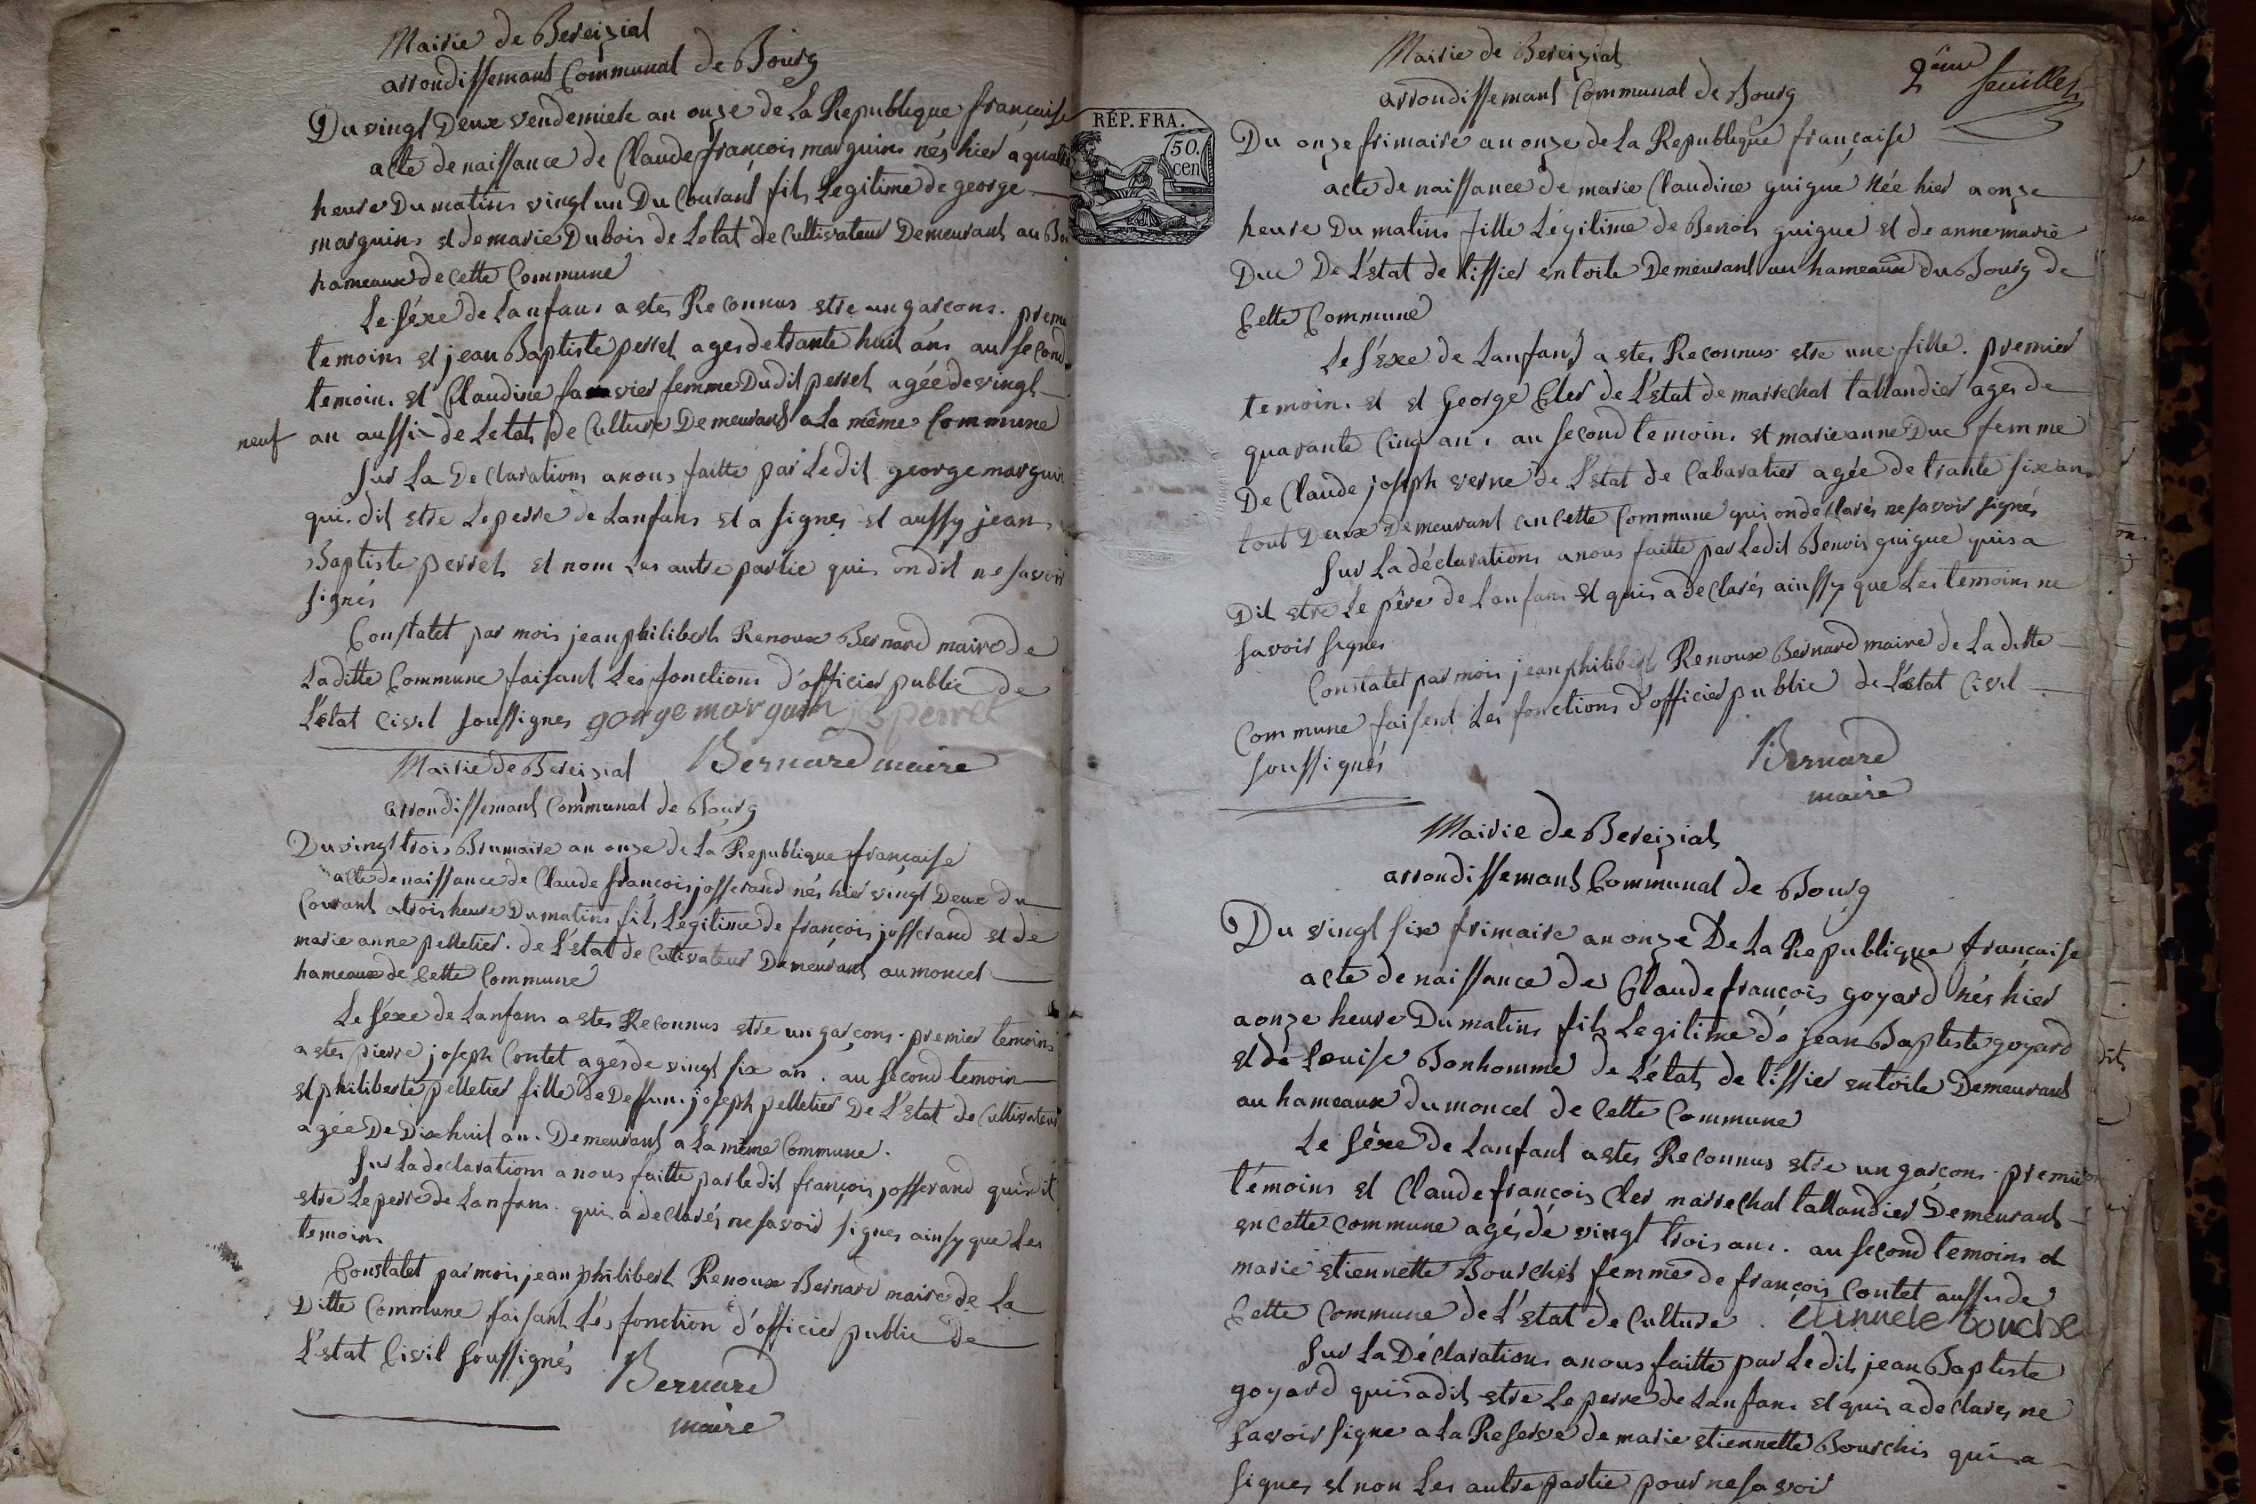 Mairie de Bereizial
arrondissemant Communal de Bourg
Du vingt Deux vendemiere an onze de La Republique française
acte de naissance de Claude françois marguins nés hier a quatre
heure Du matins vingt un Du Courant fils Legitime de george
marguins et de marie Dubois de Letat de Cultivateur Demeurant au
hameaux de cette Commune
Le Séxe de Lanfans a etes Reconnus estre un garçons. premi
temoins et jean Baptiste perret ages de trante huit ans au second
temoin. et Claudine favier femme Du dit perret agée de vingt
neuf an aussi de Letat de Culture Demeurant a La même Commune
sur La Declarations a nous faitte par Ledit george marguin
qui dit estre Le perre de Lanfans et a signes et aussy jean
Baptiste perret et nom Les autre partie quis on dit ne savoir
signés
Constatet par mois jean philibert Renoux Bernard maire de
Laditte Commune faisant Les fonctions d'officier public de
L'etat Civil soussignes gorge marguin perret
Bernard maire
Mairie de Bereizial
arrondissemant Communal de Bourg
Du vingt trois Brumaire an onze de La Republique française
acte de naissance de Claude françois josserand nés hier vingt Deux du
Courant a trois heure Du matins fils Legitime de françois josserand et de
marie anne pelletier. de L'estat de Cultivateur Demeurant au moncel
hameaux de Cette Commune
Le Séxe de Lanfans a etes Reconnus estre un garçons. premier temoins
a etes pierre joseph Contet agés de vingt six an. au second temoin
et philiberte pelletier fille de Deffun. joseph pelletier De L'estat de Cultivateur
agée De Dix huit an. Demeurant a La même Commune.
sur La declarations a nous faitte par le dit françois josserand quis dit
estre Le perre de Lanfans. quis a declarés ne savoir signes ainsy que Les
temoins
Constatet par mois jean philibert Renoux Bernard maire de La
Ditte Commune faisant Lés fonction d'officier public de
L'estat Civil soussignés
Bernard
maire
2ème feuillet
RÉP. FRA.
50 cen
Mairie de Bereizial
arrondissemant Communal de Bourg
Du onze frimaire an onze de La Republique française
acte de naissance de marie Claudine guigue Née hier a onze
heure Du matins fille Légitime de Benoit guigue et de anne marie
Duc De L'estat de tissier en toile Demeurant au hameaux du Bourg de
Cette Commune
Le Séxe de Lanfans a etes Reconnus estre une fille. premier
temoin. et et George Cler de L'estat de marrechal tallandier ages de
quarante Cinq an. au second temoin. et marie anne Duc femme
De Claude joseph verne de L'estat de Cabaratier agée de trante six an.
tout Deux Demeurant en Cette Commune qui on déclarés ne savoir signés
sur La déclarations a nous faitte par Ledit Benois guigue quis a
Dit estre Le père de Lanfans et quis a declarés ainssy que Les temoins ne
savoir signes
Constatet par mois jean philibert Renoux Bernard maire de La ditte
Commune faisent Les fonctions d'officier public de L'estat Civil
soussignés
Bernard
maire
Mairie de Bereizial
arrondissemant Communal de Bourg
Du vingt six frimaire an onze De La Republique française
acte de naissance de Claude françois goyard nés hier
a onze heure Du matins fils Legitime de jean Baptiste goyard
et de Louise Bonhomme de L'état de tissier en toile Demeurant
au hameaux du moncel de Cette Commune
Le séxe de Lanfant a etes Reconnus estre un garçons. premier
témoins et Claude françois Cler marrechal tallandier Demeurant
en Cette Commune agés de vingt trois ans. au second temoins et
marie etiennette Bourchis femme de françois Contet aussi de
Cette Commune de L'estat de Culture.
sur La Déclarations a nous faitte par Ledit jean Baptiste
goyard quis a dit estre Le perre de Lanfans et quis a declares ne
savoir signe a La Reserve de marie etiennette Bourchis quis a
signes et non Les autre partie pour ne savoir